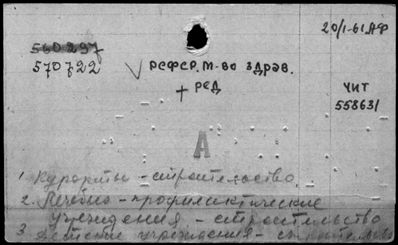 20/I-61АФ
560297
570722
√ РСФСР. М-во здрав.
+ РЕД
ЧИТ
558631
А
1. Курорты - строительство
2. Лечебно - профилактические
учреждения - строительство
3. Детские учреждения - строительство